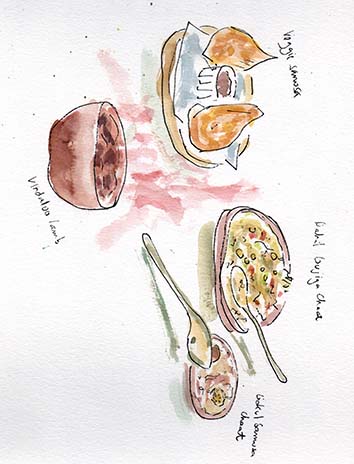 Veggie samosa
Dahil bujiya Chaat
Gokul Samosa
chaat
Vindaloo lamb